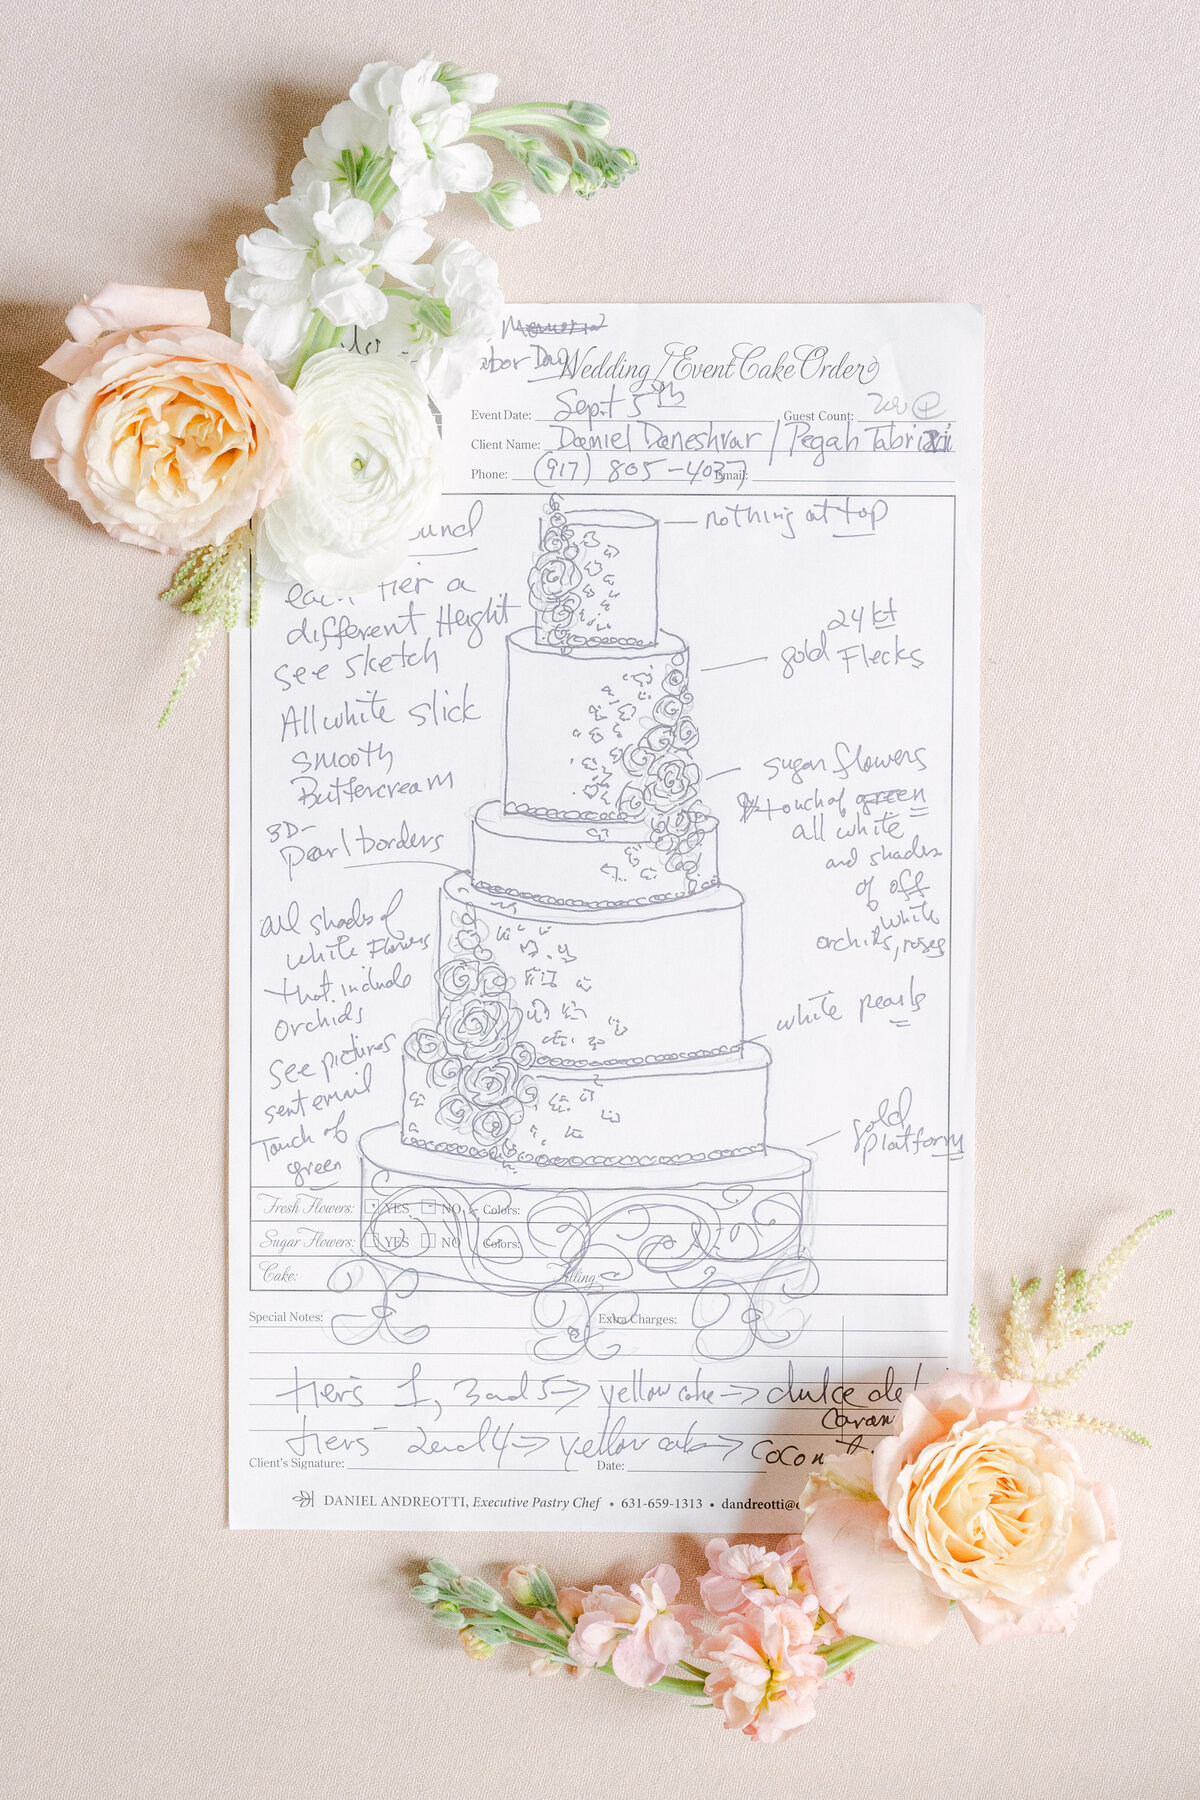 Memorial
Labor Day
Wedding / Event Cake Order
Event Date: Sept 5th Guest Count: 200
Client Name: Daniel Daneshvar / Pegah Tabrizi
Phone: (917) 805-4037 Email:
nothing at top
each tier a
different Height
see sketch
All white slick
smooth
Buttercream
3D-
Pearl borders
all shades of
white Flowers
that include
Orchids
see pictures
sent email
Touch of
green
24 kt
gold Flecks
sugar flowers
touch of green
all white
and shades
of off
white
orchids, roses
white pearls
gold
platform
Fresh Flowers: YES NO Colors:
Sugar Flowers: YES NO Colors:
Cake: Filling:
Special Notes: Extra Charges:
tiers 1, 3 and 5 → yellow cake → dulce de
tiers 2 and 4 → yellow cake →
Client's Signature: Date:
DANIEL ANDREOTTI, Executive Pastry Chef • 631-659-1313 •